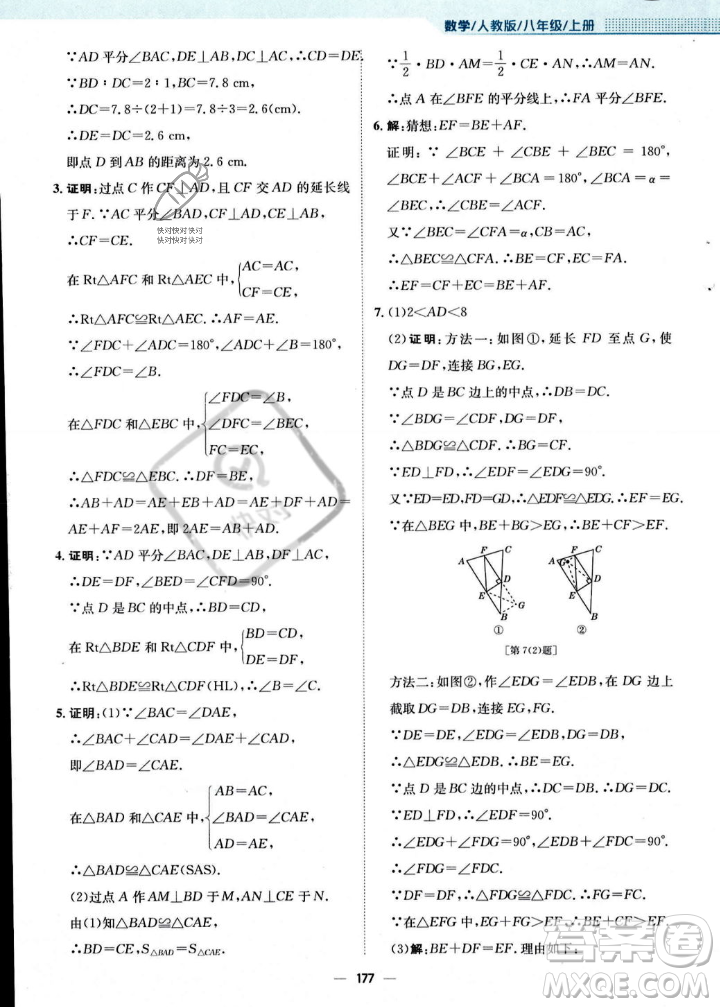 数学/人教版/八年级/上册
∵AD平分∠BAC,DE⊥AB,DC⊥AC,
∴DC=DE.
∵BD∶DC=2∶1,BC=7.8 cm,
∴DC=7.8÷(2+1)=7.8÷3=2.6(cm).
∴DE=DC=2.6 cm.
即点D到AB的距离为2.6 cm.
3.证明:过点C作CF⊥AD,且CF交AD的延长线
于F.∵AC平分∠BAD,CF⊥AD,CE⊥AB,
∴CF=CE.
在Rt△AFC和Rt△AEC中,{AC=AC,
CF=CE.
∴Rt△AFC≌Rt△AEC.∴AF=AE.
∵∠FDC+∠ADC=180°,∠ADC+∠B=180°,
∴∠FDC=∠B.
在△FDC和△EBC中,{∠FDC=∠B,
∠DFC=∠BEC,
FC=EC;
∴△FDC≌△EBC.∴DF=BE,
∴AB+AD=AE+EB+AD=AE+DF+AD=
AE+AF=2AE,即2AE=AB+AD.
4.证明:∵AD平分∠BAC,DE⊥AB,DF⊥AC,
∴DE=DF,∠BED=∠CFD=90°.
∵点D是BC的中点,∴BD=CD,
在Rt△BDE和Rt△CDF中,{BD=CD,
DE=DF,
∴Rt△BDE≌Rt△CDF(HL),∴∠B=∠C.
5.证明:(1)∵∠BAC=∠DAE,
∴∠BAC+∠CAD=∠DAE+∠CAD,
即∠BAD=∠CAE.
在△BAD和△CAE中,{AB=AC,
∠BAD=∠CAE,
AD=AE,
∴△BAD≌△CAE(SAS).
(2)过点A作AM⊥BD于M,AN⊥CE于N.
由(1)知△BAD≌△CAE,
∴BD=CE,S△BAD=S△CAE.
∵1/2·BD·AM=1/2·CE·AN,∴AM=AN.
∴点A在∠BFE的平分线上,∴FA平分∠BFE.
6.解:猜想:EF=BE+AF.
证明:∵∠BCE+∠CBE+∠BEC=180°,
∠BCE+∠ACF+∠BCA=180°,∠BCA=α=
∠BEC,∴∠CBE=∠ACF.
又∵∠BEC=∠CFA=α,CB=CA,
∴△BEC≌△CFA.∴BE=CF,EC=FA.
∴EF=CF+EC=BE+AF.
7.(1)2<AD<8
(2)证明:方法一:如图①,延长FD至点G,使
DG=DF,连接BG,EG.
∵点D是BC边上的中点,∴DB=DC.
∵∠BDG=∠CDF,DG=DF,
∴△BDG≌△CDF.∴BG=CF.
∵ED⊥FD,∴∠EDF=∠EDG=90°.
又∵ED=ED,∴△EDF≌△EDG,∴EF=EG.
∵在△BEG中,BE+BG>EG,∴BE+CF>EF.
A F C
E D
B G
①
A G F C
E D
B
②
[第7(2)题]
方法二:如图②,作∠EDG=∠EDB,在DG边上
截取DG=DB,连接EG,FG.
∵DE=DE,∴△EDG≌△EDB.∴BE=EG.
∵点D是BC边的中点,∴DC=DB.∴DG=DC.
∵ED⊥FD,∴∠EDF=90°.
∴∠EDG+∠FDG=90°,∠EDB+∠FDC=90°.
∵∠EDG=∠EDB,∴∠FDG=∠FDC.
∵FD=FD,∴△FDG≌△FDC.∴FG=FC.
∵在△EFG中,EG+FG>EF,∴BE+CF>EF.
(3)解:BE+DF=EF.理由如下:
177
快对快对快对
快对快对快对
快对
答案圈